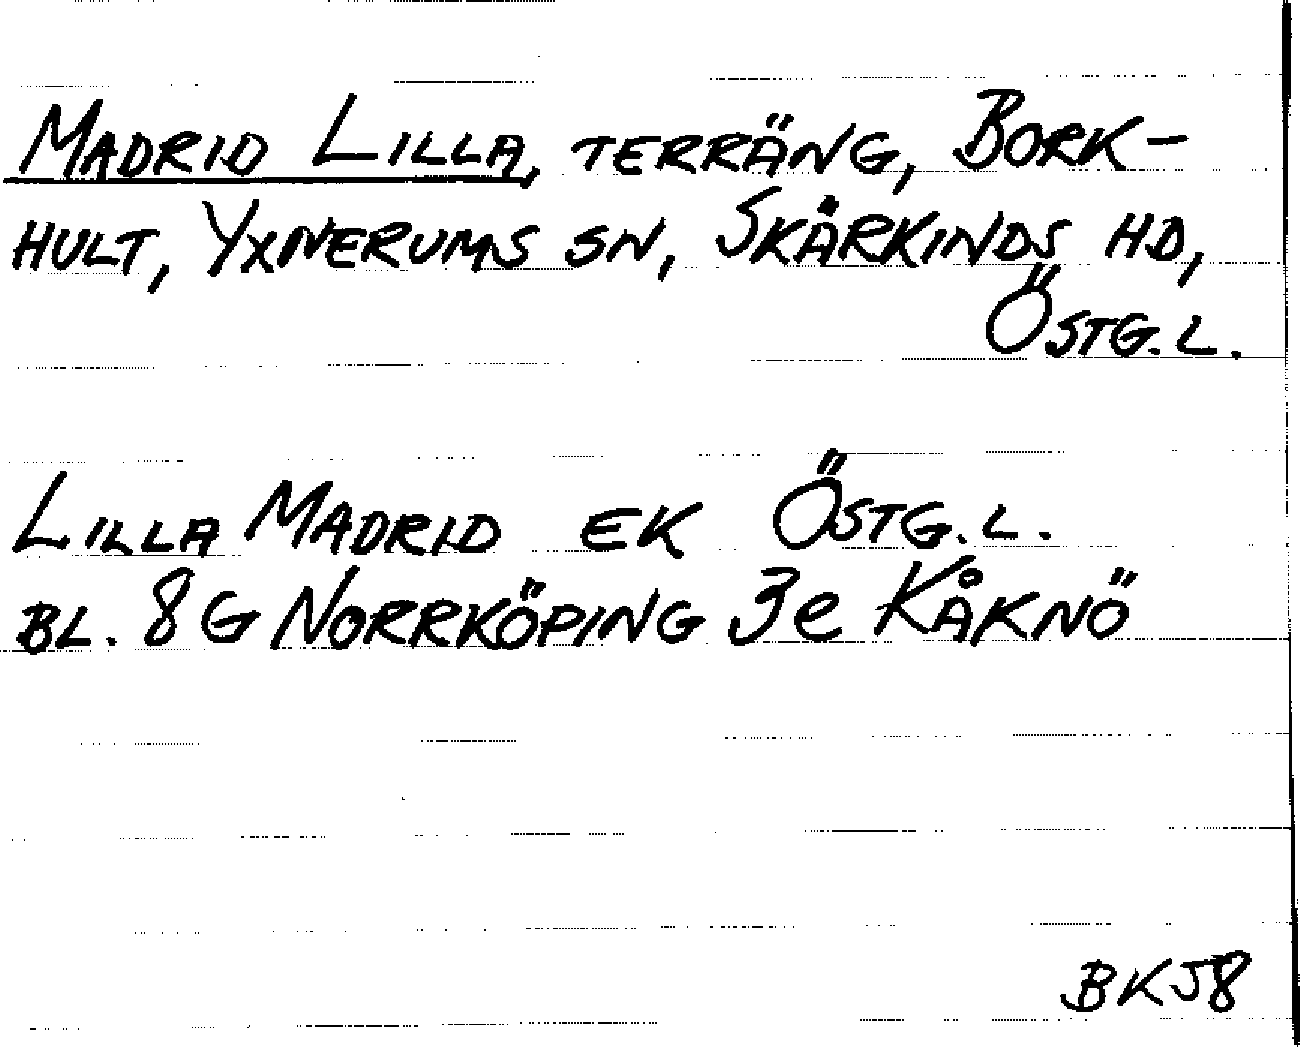 MADRID LILLA, TERRÄNG, BORK-
HULT, YXNERUMS SN, SKÅRKINDS HD,
ÖSTG. L.
LILLA MADRID EK ÖSTG. L.
BL. 8G NORRKÖPING 3e KÅKNÖ
BKJ8